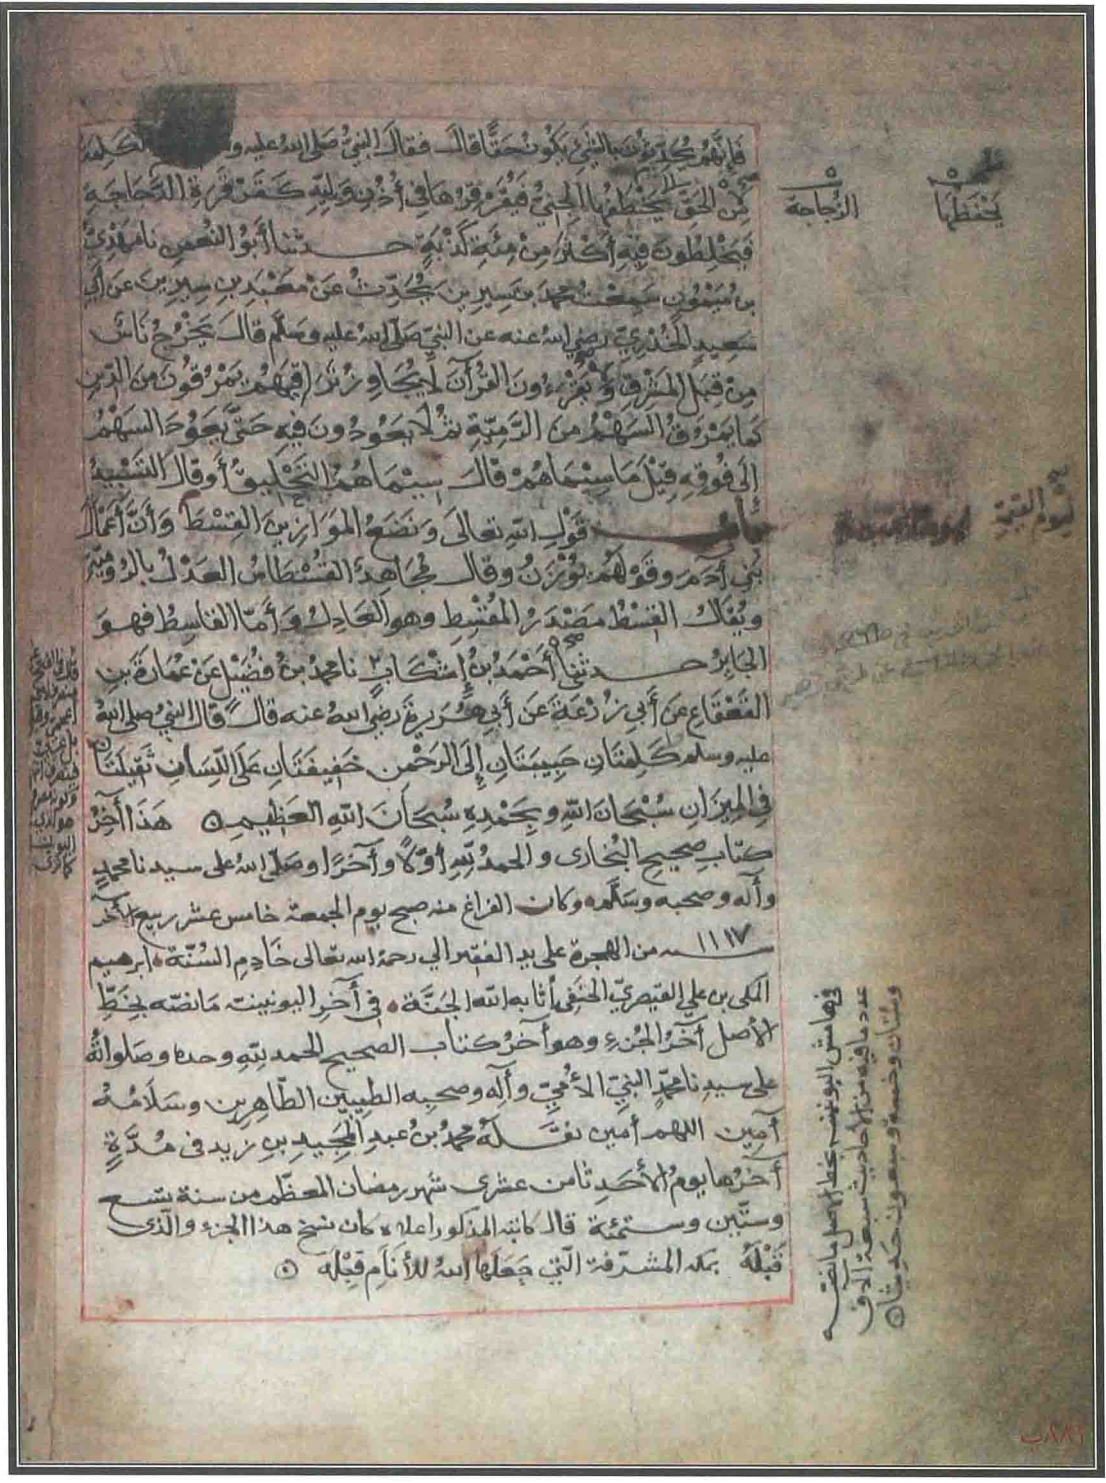 فإنهم يحدثون بالشئ يكون حقا قال فقال النبي صلى الله عليه الكلمة
من الحق يخطفها الجني فيقرقرها في أذن وليه كقرقرة الدجاجة
فيخلطون فيه أكثر من مئة كذبة حدثنا أبو النعمن نا مهدي
بن ميمون سمعت محمد بن سيرين يحدث عن معبد بن سيرين عن أبي
سعيد الخدري رضي الله عنه عن النبي صلى الله عليه وسلم قال يخرج ناس
من قبل المشرق ويقرءون القرآن لا يجاوز تراقيهم يمرقون من الدين
كما يمرق السهم من الرمية ثم لا يعودون فيه حتى يعود السهم
إلى فوقه قيل ما سيماهم قال سيماهم التحليق أو قال التسبيد
باب قول الله تعالى ونضع الموازين القسط وأن أعمال
بني آدم وقولهم يوزن وقال مجاهد القسطاس العدل بالرومية
ويقال القسط مصدر المقسط وهو العادل وأما القاسط فهو
الجاير حدثنى أحمد بن إشكاب نا محمد بن فضيل عن عمارة بن
القعقاع عن أبي زرعة عن أبي هريرة رضي الله عنه قال قال النبي صلى الله
عليه وسلم كلمتان حبيبتان إلى الرحمن خفيفتان على اللسان ثقيلتان
في الميزان سبحان الله وبحمده سبحان الله العظيم هذا آخر
كتاب صحيح البخارى والحمد لله أولا وآخرا وصلى الله على سيدنا محمد
وآله وصحبه وسلم وكان الفراغ منه صبح يوم الجمعة خامس عشر ربيع الآخر
سنة ١١١٧ من الهجرة على يد الفقير الى رحمة الله تعالى خادم السنة ابرهيم
المكى بن علي القيصري الحنفى أثابه الله الجنة في آخر اليونينية ما نصه بخط
الأصل آخر الجزء وهو آخر كتاب الصحيح الحمد لله وحده وصلوات الله
على سيدنا محمد النبي الأمي وآله وصحبه الطيبين الطاهرين وسلامه
آمين اللهم آمين نقله محمد بن عبد المجيد بن زيد في مدة
آخرها يوم الأحد ثامن عشرى شهر رمضان المعظم من سنة تسع
وستين وستمئة قال كاتبه المذكور اعلاه كان نسخ هذا الجزء والذى
قبله بمكة المشرفة التي جعلها الله للأنام قبلة
يخفظها
الزجاجة
ليوم القيمة
في هامش اليونينية بخط الاصل ما نصه
عدد ما فيه من الأحاديث سبعة آلاف
وستان وخمسة وسبعون حديثا